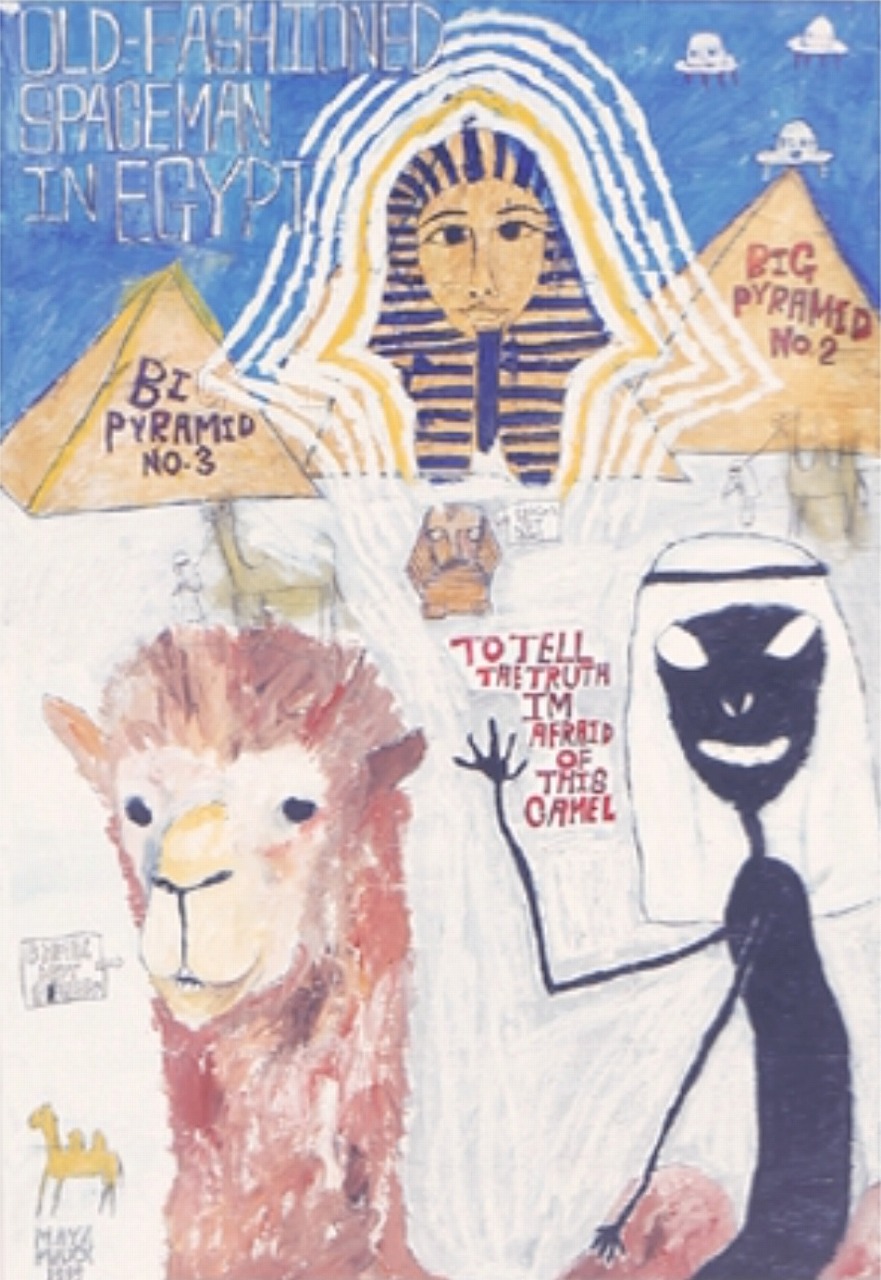 OLD-FASHIONED
SPACEMAN
IN EGYPT
BIG
PYRAMID
NO. 2
BI
PYRAMID
NO. 3
TO TELL
THE TRUTH
IM
AFRAID
OF
THIS
CAMEL